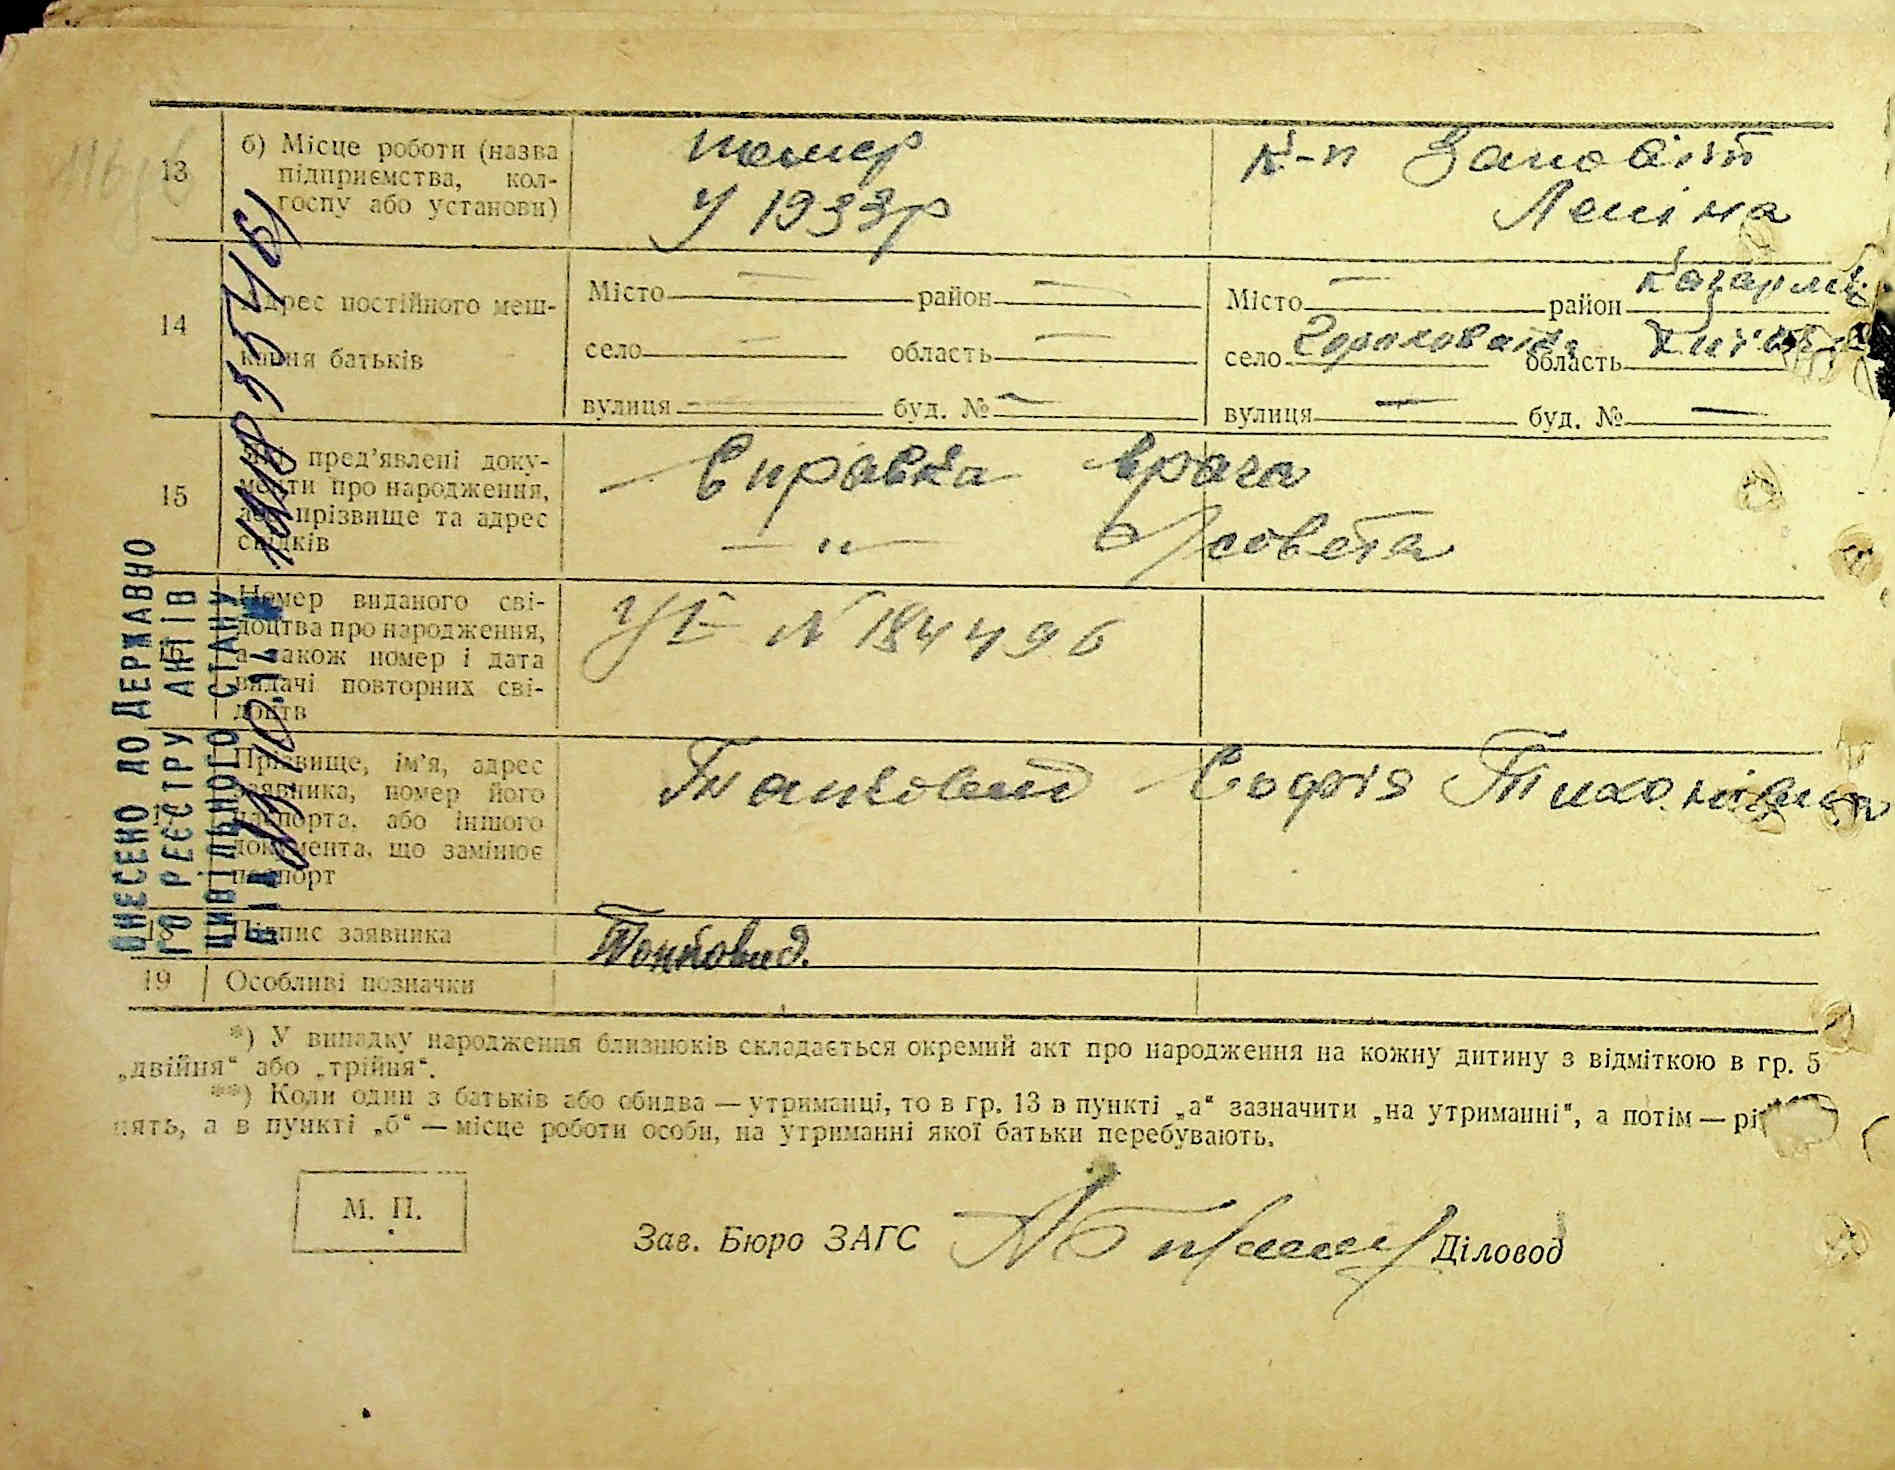 13
б) Місце роботи (назва
підприємства, кол-
госпу або установи)
помер
у 1933р
к-п Заповіт
Леніна
14
Адрес постійного меш-
кання батьків
Місто район
село область
вулиця буд. №
Місто район Кагарлик
село область
вулиця буд. №
15
Які пред'явлені доку-
менти про народження,
або прізвище та адрес
свідків
Справка врача
— " — с/совета
16
Номер виданого сві-
доцтва про народження,
а також номер і дата
видачі повторних сві-
доцтв
N 184496
17
Прізвище, ім'я, адрес
заявника, номер його
паспорта, або іншого
документа, що замінює
паспорт
Софія Тихонівна
18
Підпис заявника
19
Особливі позначки
*) У випадку народження близнюків складається окремий акт про народження на кожну дитину з відміткою в гр. 5
„двійня“ або „трійня“.
**) Коли один з батьків або обидва — утриманці, то в гр. 13 в пункті „а“ зазначити „на утриманні“, а потім —
нять, а в пункті „б“ — місце роботи особи, на утриманні якої батьки перебувають.
М. П.
Зав. Бюро ЗАГС
Діловод
ВНЕСЕНО ДО ДЕРЖАВНО
ГО РЕЄСТРУ АКТІВ
ЦИВІЛЬНОГО СТАНУ